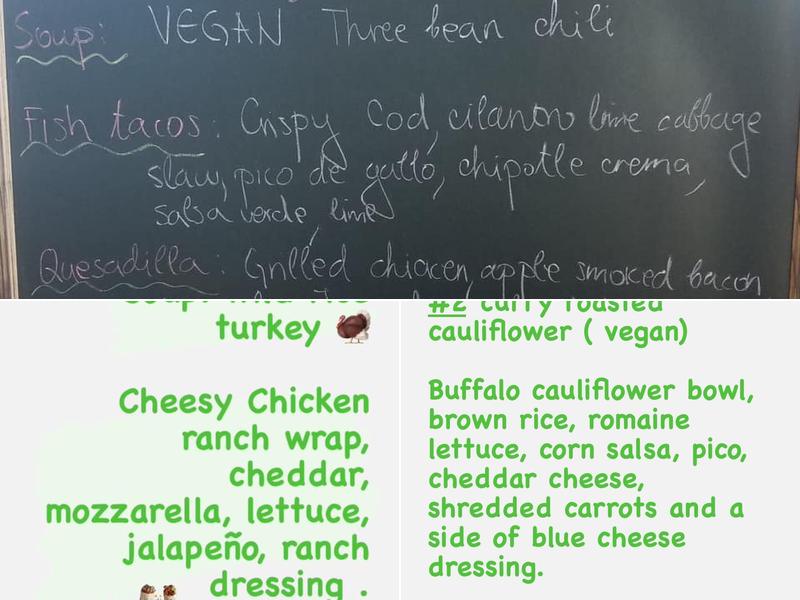 Soup: VEGAN Three bean chili
Fish tacos: Crispy Cod, cilantro lime cabbage
slaw, pico de gallo, chipotle crema,
salsa verde lime
Quesadilla: Grilled chicken, apple smoked bacon
Soup: wild rice
turkey 🦃
Cheesy Chicken
ranch wrap,
cheddar,
mozzarella, lettuce,
jalapeño, ranch
dressing .
#2 curry roasted
cauliflower ( vegan)
Buffalo cauliflower bowl,
brown rice, romaine
lettuce, corn salsa, pico,
cheddar cheese,
shredded carrots and a
side of blue cheese
dressing.